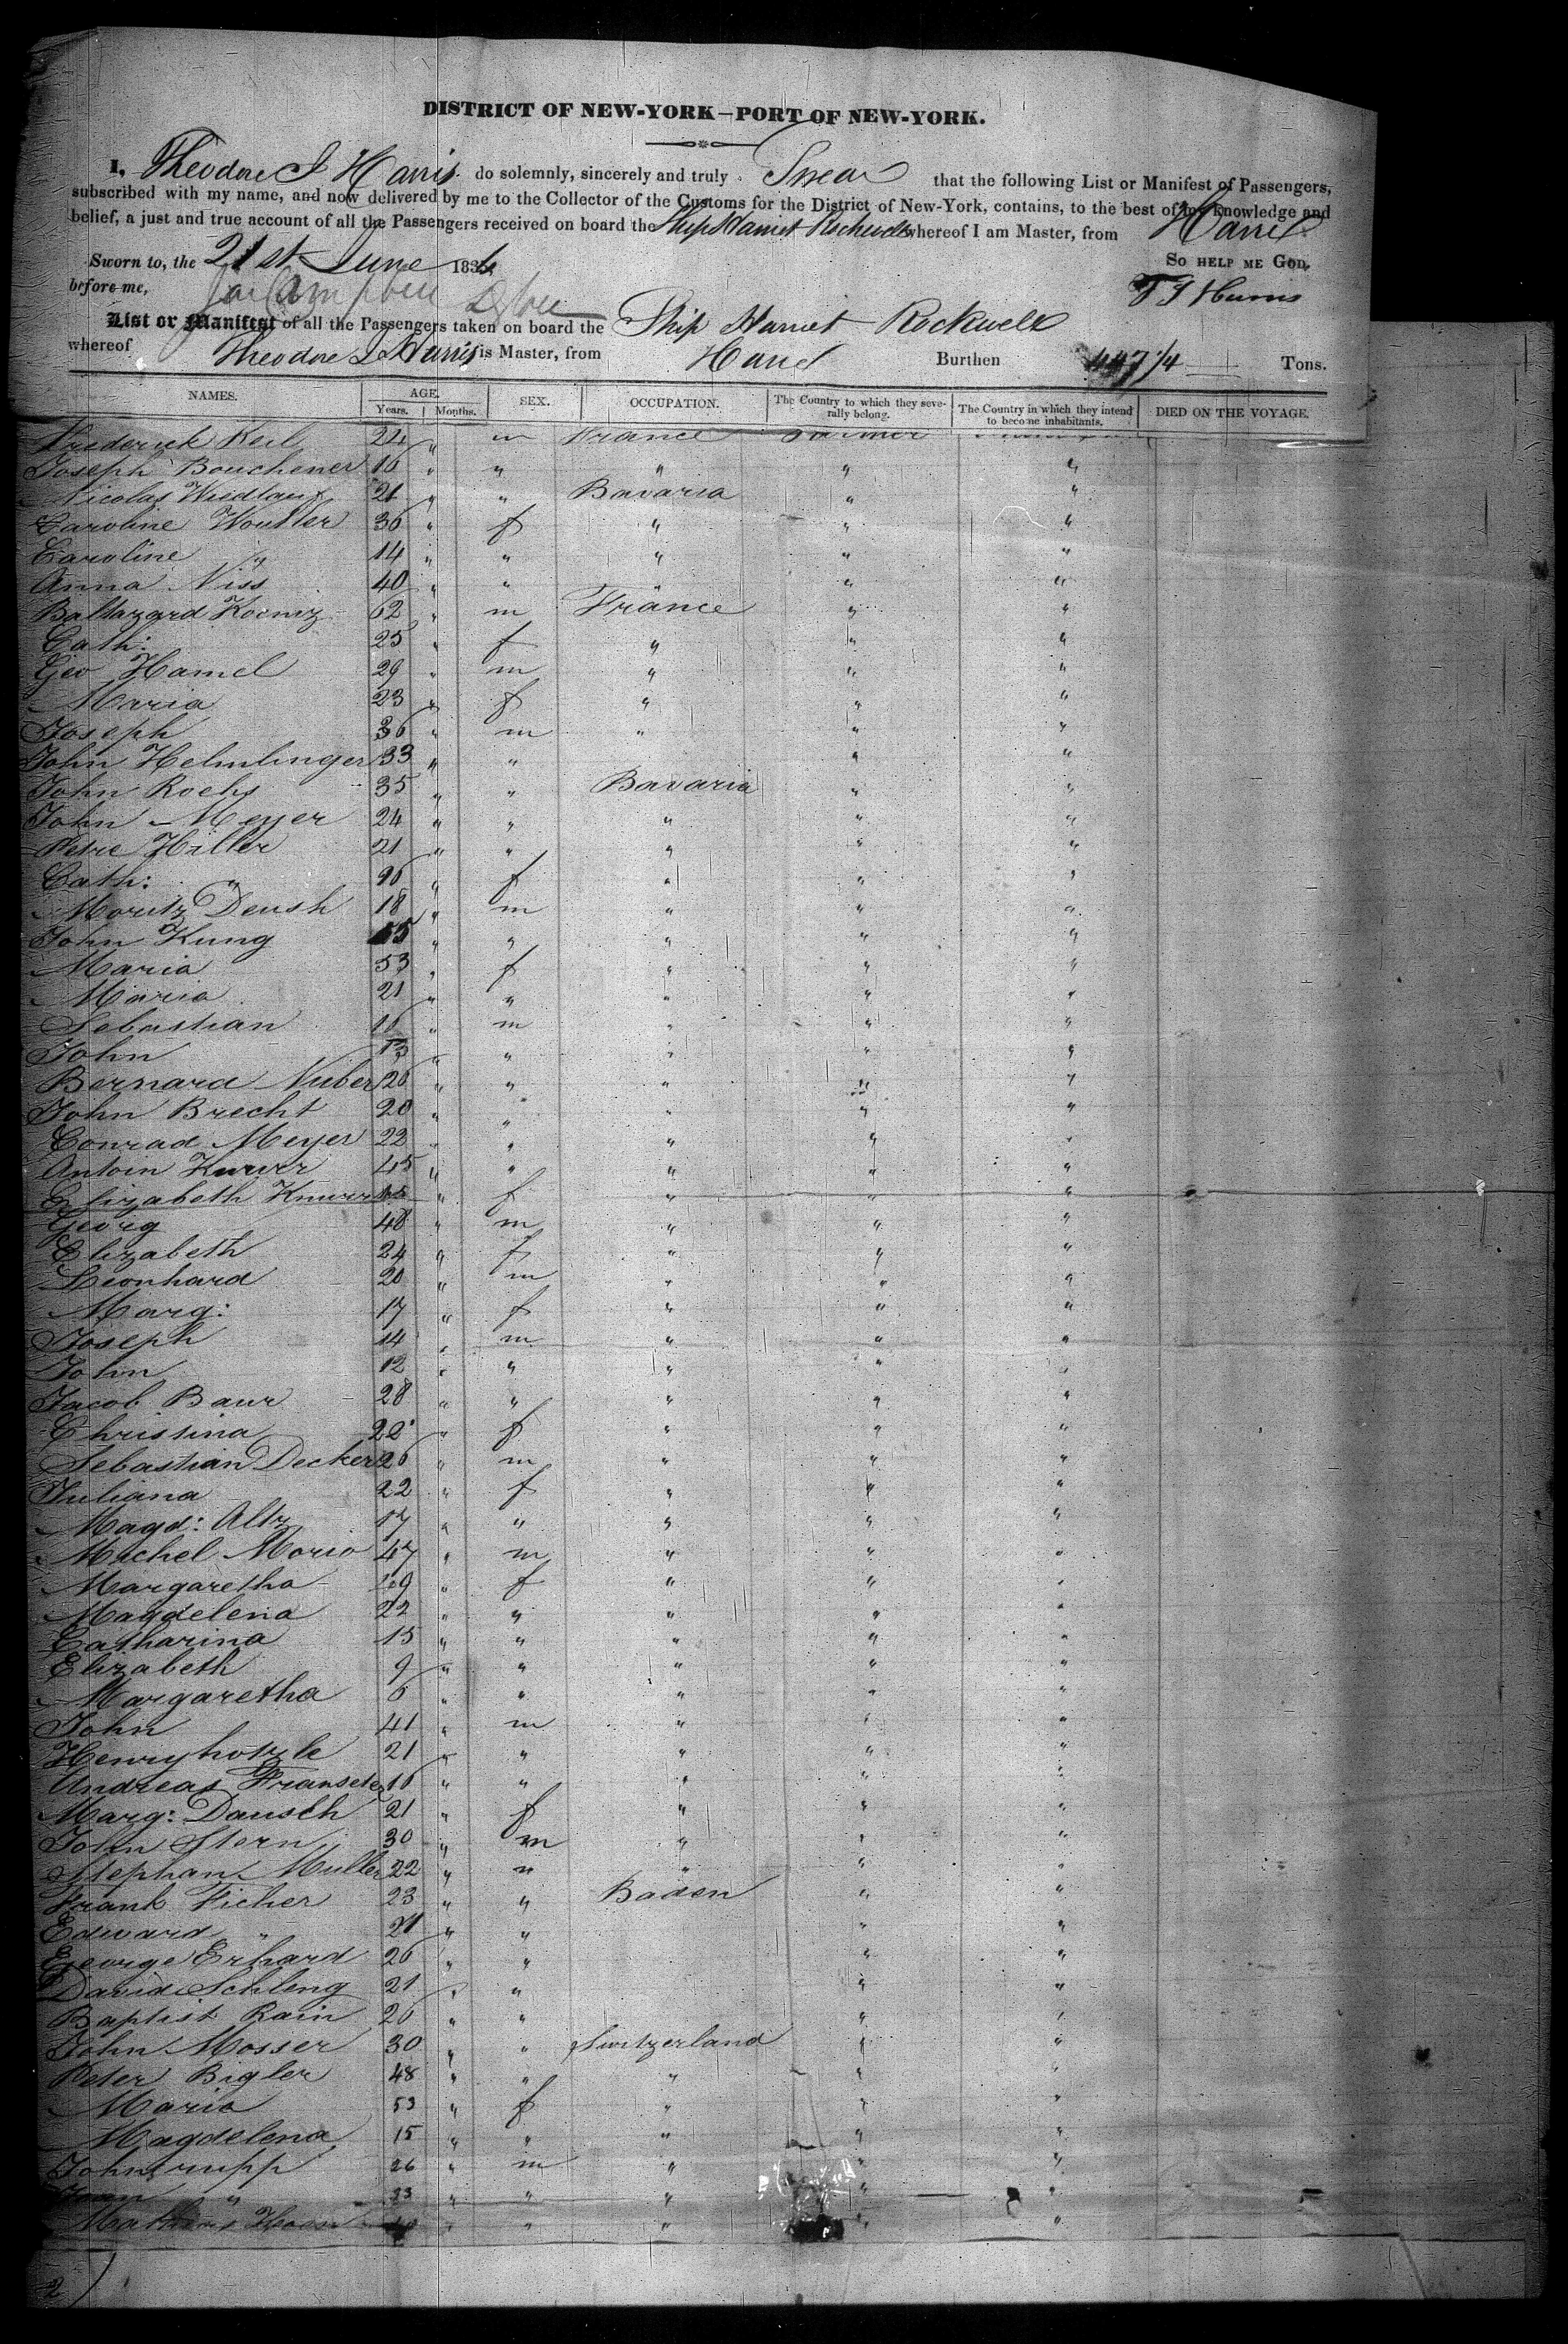 DISTRICT OF NEW-YORK—PORT OF NEW-YORK.
I, Theodore J Harris do solemnly, sincerely and truly Swear that the following List or Manifest of Passengers,
subscribed with my name, and now delivered by me to the Collector of the Customs for the District of New-York, contains, to the best of my knowledge and
belief, a just and true account of all the Passengers received on board the Ship Harriet Rockwell whereof I am Master, from Havre
Sworn to, the 21st June 183 So help me God,
before me, T J Harris
List or Manifest of all the Passengers taken on board the Ship Harriet Rockwell
whereof Theodore J Harris is Master, from Havre Burthen 447 1/4 Tons.
NAMES. AGE. SEX. OCCUPATION. The Country to which they severally belong. The Country in which they intend to become inhabitants. DIED ON THE VOYAGE.
Years. Months.
Frederick Keil 24 " m France Farmer
Joseph Bouchener 16 " " " " "
Nicolas Wiedlauf 21 " " Bavaria " "
Caroline Woutler 36 " f " " "
Caroline " 14 " " " " "
Anna Niss 40 " " " " "
Baltazard Koenig 62 " m France " "
Cath: 25 " f " " "
Geo Hamel 29 " m " " "
Maria 23 " f " " "
Joseph 36 " m " " "
John Helmlinger 33 " " " "
John Rochs 35 " " Bavaria " "
John Meyer 24 " " " " "
Petre Hiller 21 " " " " "
Cath: " " f " " "
Moritz Deush 18 " m " " "
John Kung 55 " " " " "
Maria 53 " f " " "
Maria 21 " " " " "
Sebastian 16 " m " " "
John 13 " " " " "
Bernard Nuber 26 " " " " "
John Brecht 20 " " " " "
Conrad Meyer 22 " " " " "
Antoin Knurr 45 " " " " "
Elizabeth Knurr " f " " "
Georg 48 " m " " "
Elizabeth 24 " f " " "
Leonhard 20 " m " " "
Marg: 17 " f " " "
Joseph 14 " m " " "
John 12 " " " " "
Jacob Baur 28 " " " " "
Christina 22 " f " " "
Sebastian Decker 26 " m " " "
Juliana 22 " f " " "
Magd: Altz 17 " " " " "
Michel Morio 47 " m " " "
Margaretha 49 " f " " "
Magdelena 22 " " " " "
Catharina 15 " " " " "
Elizabeth 9 " " " " "
Margaretha 6 " " " " "
John 41 " m " " "
Henry hotzle 21 " " " " "
Andreas 16 " " " " "
Marg: Dausch 21 " f " " "
John Stern 30 " m " " "
Stephan Muller 22 " " " " "
Frank Ficher 23 " " Baden " "
Edward " 21 " " " "
George Erhard 26 " " " "
David Schleng 21 " " " "
Baptist Rain 26 " " " "
John Mosser 30 " " Switzerland " "
Peter Bigler 48 " " " " "
Maria 53 " f " " "
Magdelena 15 " " " " "
John rupp 26 " m " " "
" 23 " " " " "
" " " " "
2)